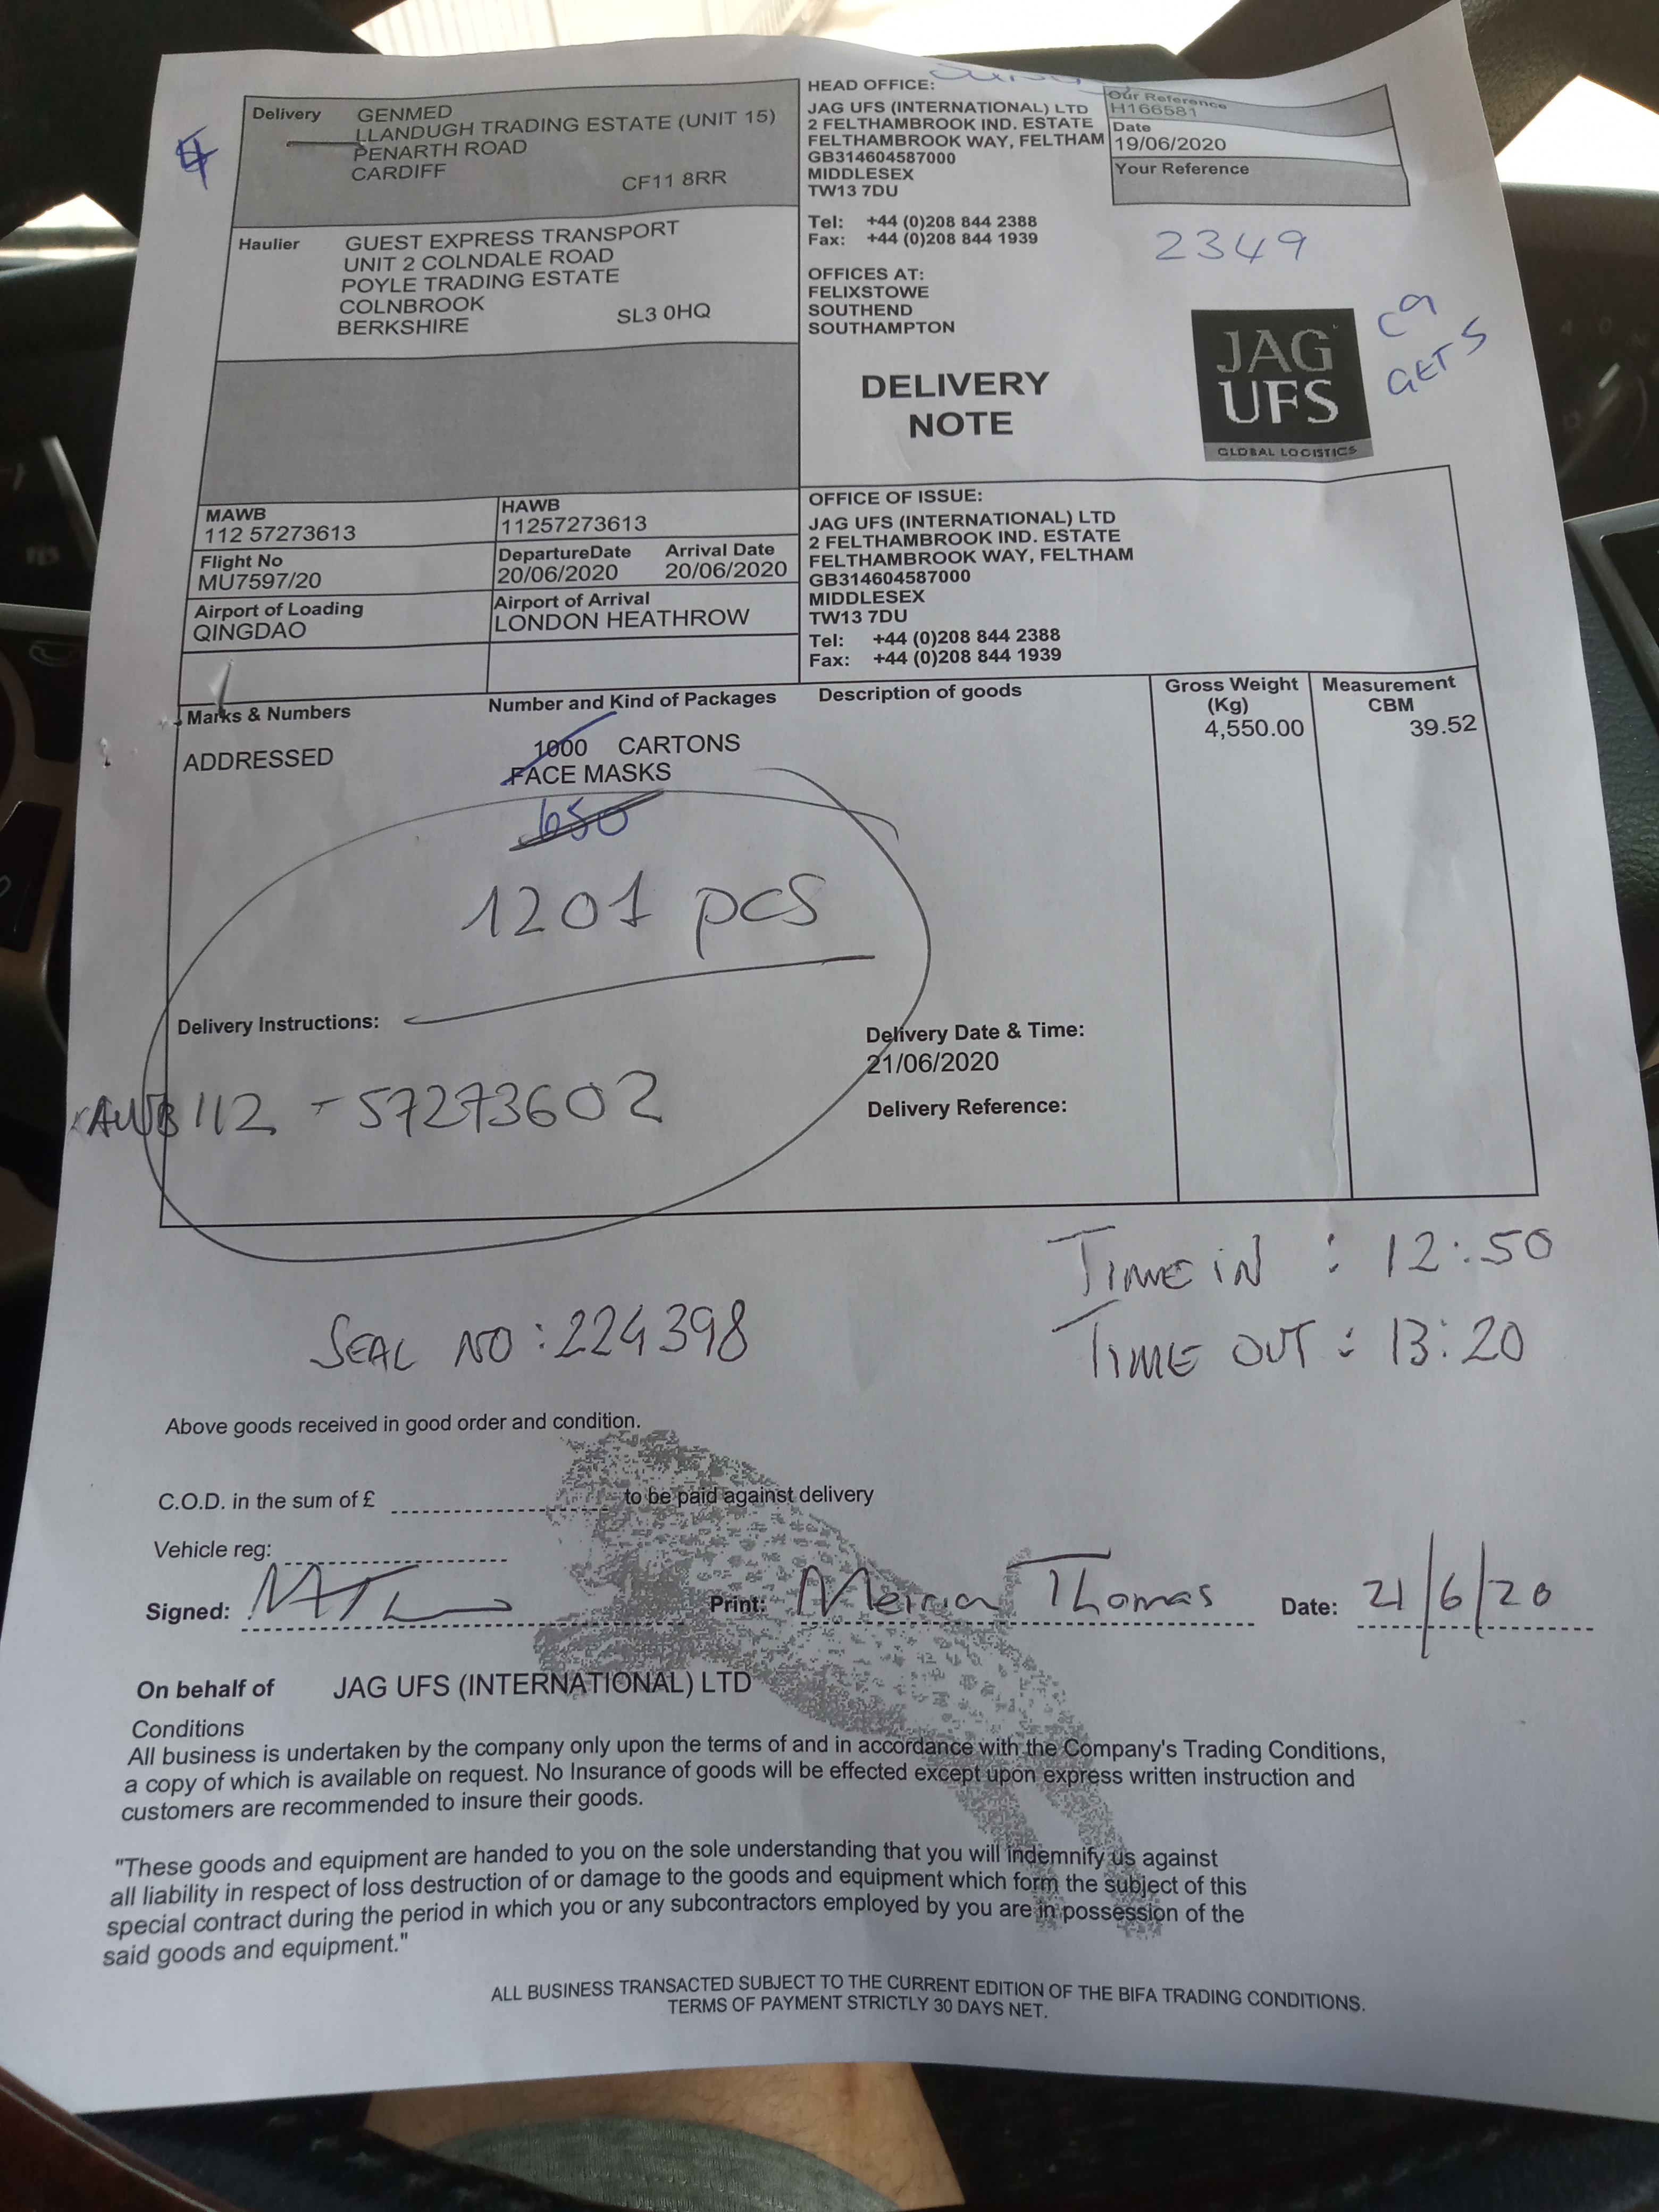 Delivery
GENMED
LLANDUGH TRADING ESTATE (UNIT 15)
PENARTH ROAD
CARDIFF
CF11 8RR
Haulier
GUEST EXPRESS TRANSPORT
UNIT 2 COLNDALE ROAD
POYLE TRADING ESTATE
COLNBROOK
BERKSHIRE
SL3 0HQ
HEAD OFFICE:
JAG UFS (INTERNATIONAL) LTD
2 FELTHAMBROOK IND. ESTATE
FELTHAMBROOK WAY, FELTHAM
GB314604587000
MIDDLESEX
TW13 7DU
Tel: +44 (0)208 844 2388
Fax: +44 (0)208 844 1939
OFFICES AT:
FELIXSTOWE
SOUTHEND
SOUTHAMPTON
Our Reference
H166581
Date
19/06/2020
Your Reference
2349
C9
GETS
DELIVERY
NOTE
JAG
UFS
GLOBAL LOGISTICS
MAWB
112 57273613
HAWB
11257273613
Flight No
MU7597/20
DepartureDate
20/06/2020
Arrival Date
20/06/2020
Airport of Loading
QINGDAO
Airport of Arrival
LONDON HEATHROW
OFFICE OF ISSUE:
JAG UFS (INTERNATIONAL) LTD
2 FELTHAMBROOK IND. ESTATE
FELTHAMBROOK WAY, FELTHAM
GB314604587000
MIDDLESEX
TW13 7DU
Tel: +44 (0)208 844 2388
Fax: +44 (0)208 844 1939
Marks & Numbers
Number and Kind of Packages
Description of goods
Gross Weight
(Kg)
Measurement
CBM
ADDRESSED
1000 CARTONS
FACE MASKS
4,550.00
39.52
650
1201 pcs
Delivery Instructions:
AWB 112 - 57273602
Delivery Date & Time:
21/06/2020
Delivery Reference:
TIME IN : 12:50
TIME OUT : 13:20
SEAL NO : 224398
Above goods received in good order and condition.
C.O.D. in the sum of £ to be paid against delivery
Vehicle reg:
Signed:
Print: Meirion Thomas
Date: 21/6/20
On behalf of JAG UFS (INTERNATIONAL) LTD
Conditions
All business is undertaken by the company only upon the terms of and in accordance with the Company's Trading Conditions,
a copy of which is available on request. No Insurance of goods will be effected except upon express written instruction and
customers are recommended to insure their goods.
"These goods and equipment are handed to you on the sole understanding that you will indemnify us against
all liability in respect of loss destruction of or damage to the goods and equipment which form the subject of this
special contract during the period in which you or any subcontractors employed by you are in possession of the
said goods and equipment."
ALL BUSINESS TRANSACTED SUBJECT TO THE CURRENT EDITION OF THE BIFA TRADING CONDITIONS.
TERMS OF PAYMENT STRICTLY 30 DAYS NET.